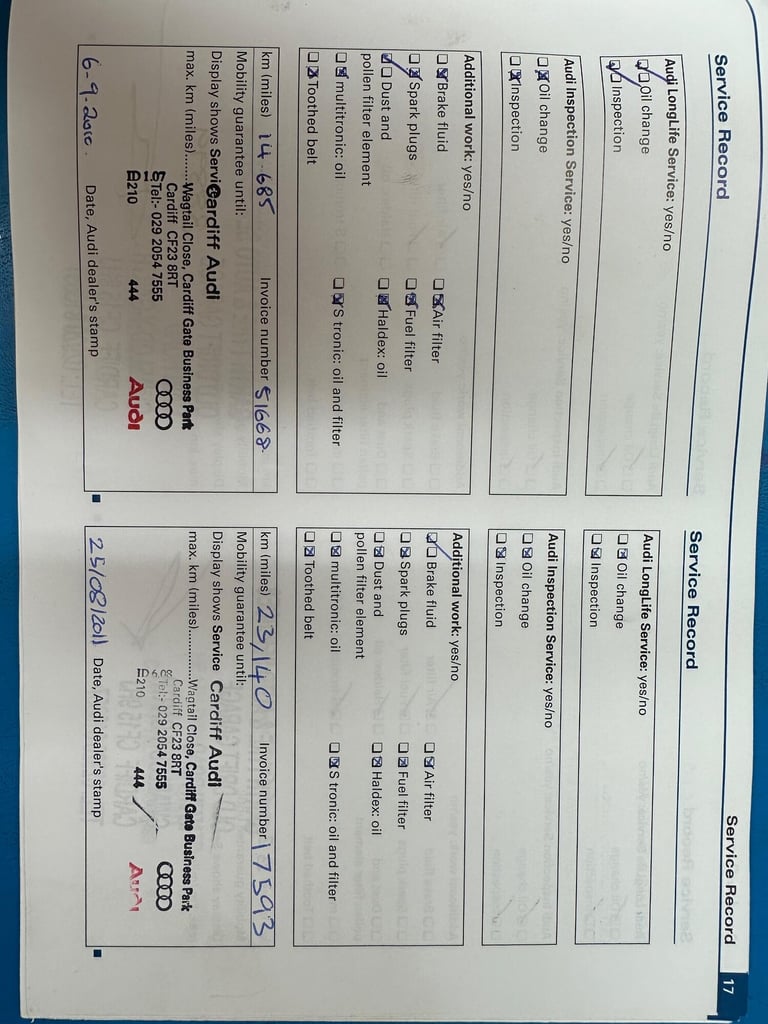 Service Record 17
Service Record
Audi LongLife Service: yes/no
Oil change
Inspection
Audi Inspection Service: yes/no
Oil change
Inspection
Additional work: yes/no
Brake fluid Air filter
Spark plugs Fuel filter
Dust and Haldex: oil
pollen filter element
multitronic: oil S tronic: oil and filter
Toothed belt
km (miles) 14 685 Invoice number 51668
Mobility guarantee until:
Display shows Service Cardiff Audi
max. km (miles)........Wagtail Close, Cardiff Gate Business Park
Cardiff CF23 8RT
Tel:- 029 2054 7555
210 444 Audi
6-9-2010. Date, Audi dealer's stamp
Service Record
Audi LongLife Service: yes/no
Oil change
Inspection
Audi Inspection Service: yes/no
Oil change
Inspection
Additional work: yes/no
Brake fluid Air filter
Spark plugs Fuel filter
Dust and Haldex: oil
pollen filter element
multitronic: oil S tronic: oil and filter
Toothed belt
km (miles) 23,140 Invoice number 17593
Mobility guarantee until:
Display shows Service Cardiff Audi
max. km (miles)..............Wagtail Close, Cardiff Gate Business Park
Cardiff CF23 8RT
Tel:- 029 2054 7555
210 444 Audi
25/08/2011 Date, Audi dealer's stamp